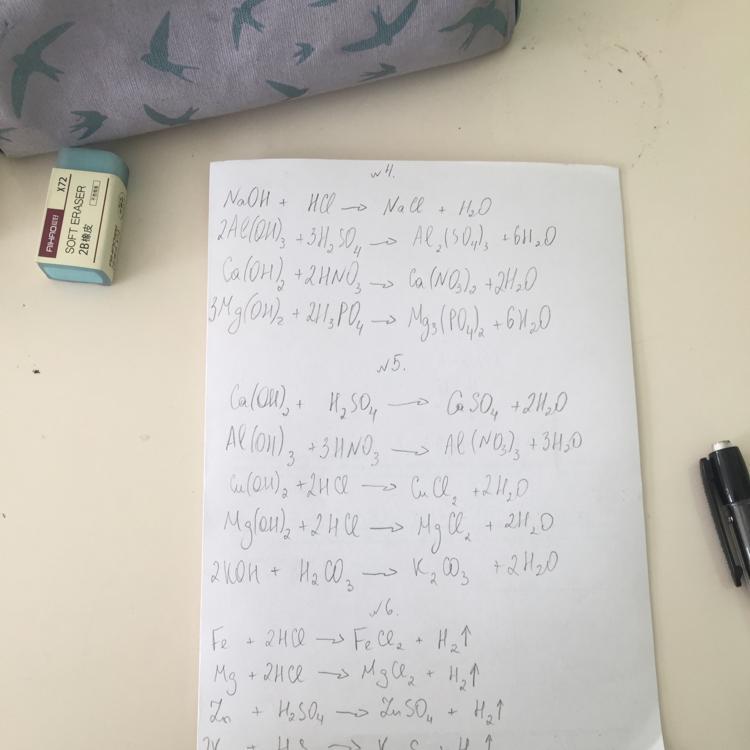 X72
SOFT ERASER
2B橡皮
№4.
NaOH + HCl → NaCl + H₂O
2Al(OH)₃ + 3H₂SO₄ → Al₂(SO₄)₃ + 6H₂O
Ca(OH)₂ + 2HNO₃ → Ca(NO₃)₂ + 2H₂O
3Mg(OH)₂ + 2H₃PO₄ → Mg₃(PO₄)₂ + 6H₂O
№5.
Ca(OH)₂ + H₂SO₄ → CaSO₄ + 2H₂O
Al(OH)₃ + 3HNO₃ → Al(NO₃)₃ + 3H₂O
Cu(OH)₂ + 2HCl → CuCl₂ + 2H₂O
Mg(OH)₂ + 2HCl → MgCl₂ + 2H₂O
2KOH + H₂CO₃ → K₂CO₃ + 2H₂O
№6
Fe + 2HCl → FeCl₂ + H₂↑
Mg + 2HCl → MgCl₂ + H₂↑
Zn + H₂SO₄ → ZnSO₄ + H₂↑